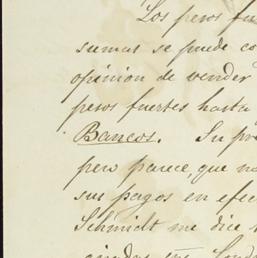 Los pesos fu
sumas se puede co
opinion de vender
pesos fuertes hasta
Bancos. Su pr
pero parece, que no
sus pagos en efec
Schmidt me dice